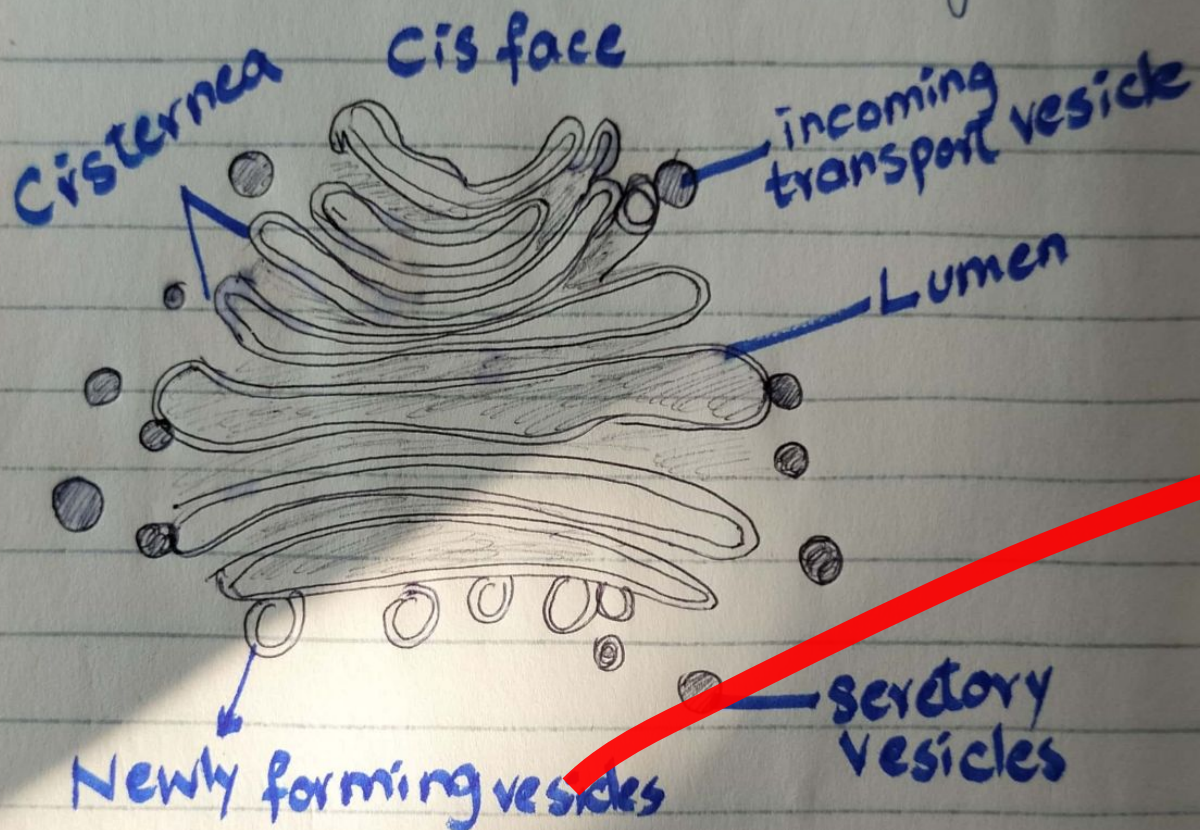 Cis face
Cisternea
incoming
transport vesicle
Lumen
Seretory
vesicles
Newly forming vesicles